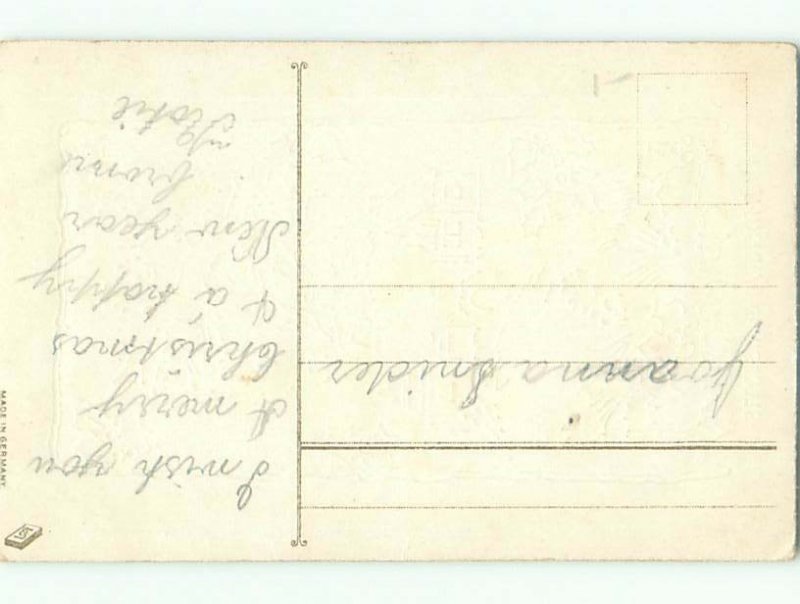 I wish you
A merry
Christmas
& a happy
New year
from
Joanna Snider
MADE IN GERMANY.